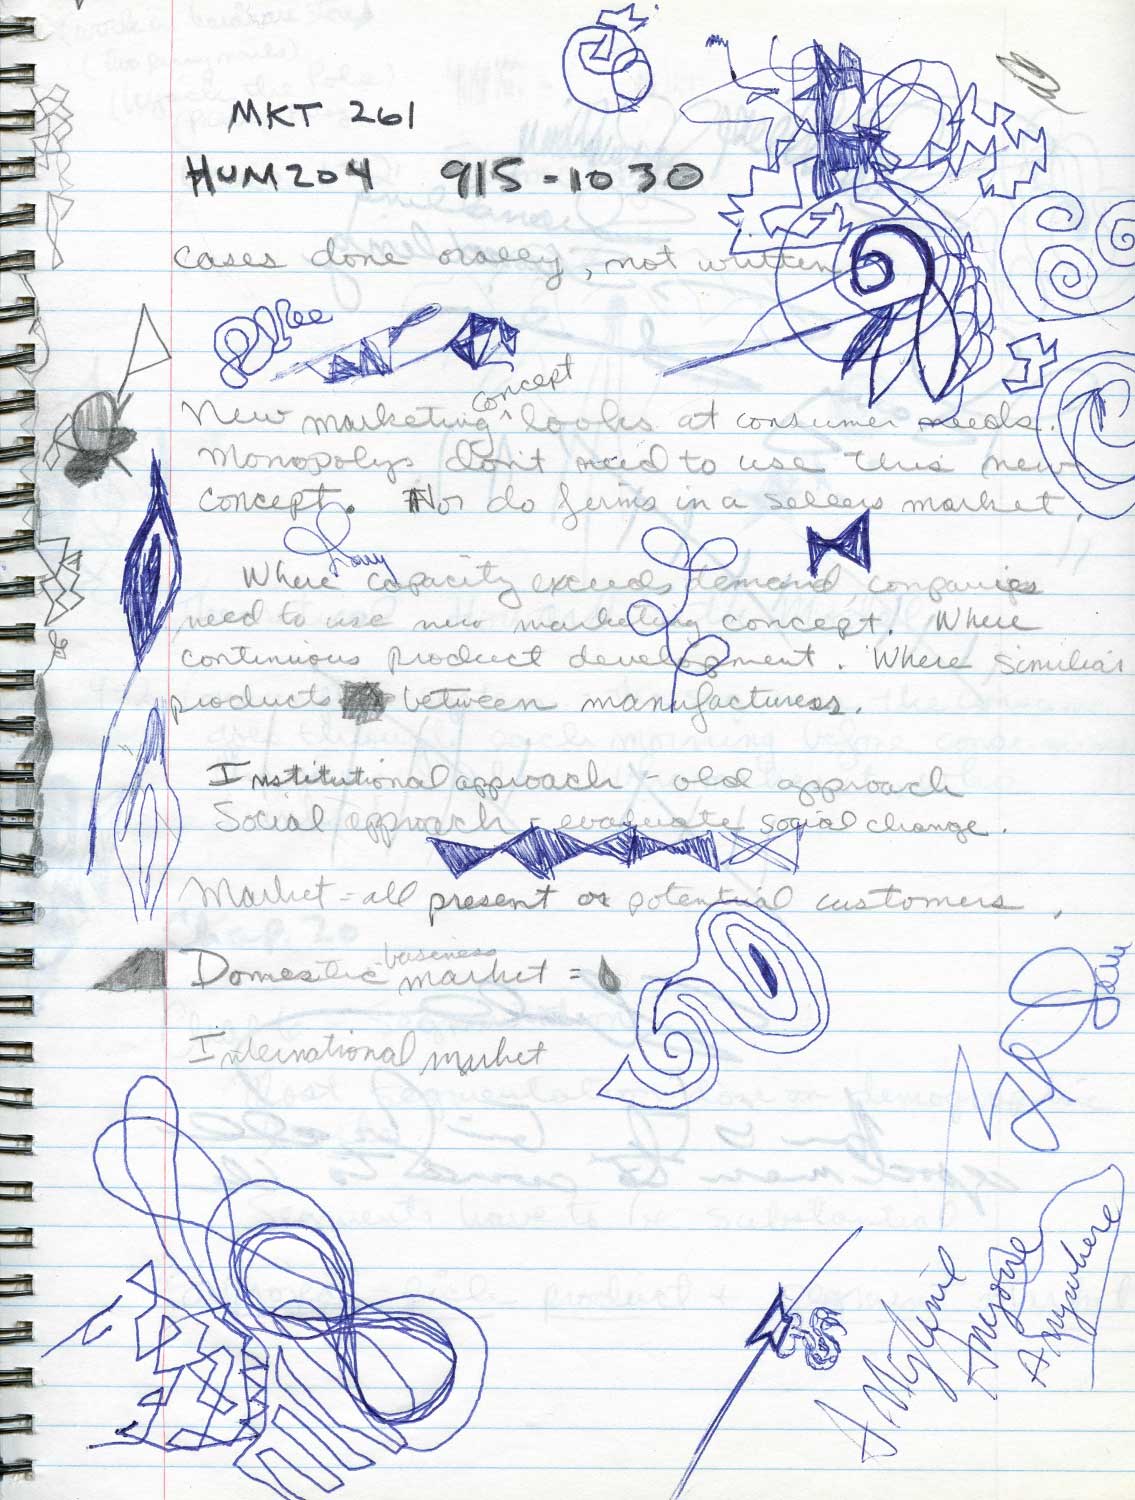 MKT 261
HUM 204 915-1030
cases done orally, not written
New marketing concept looks at consumer needs.
Monopolys don't need to use this new
concept. Nor do firms in a sellers market.
Where capacity exceeds demand, companies
need to use new marketing concept. Where
continuous product development. Where similiar
products between manufacturers.
Institutional approach - old approach
Social approach - evaluate social change.
Market = all present or potential customers.
Domestic business market =
International market
Anytime
Anyone
Anywhere